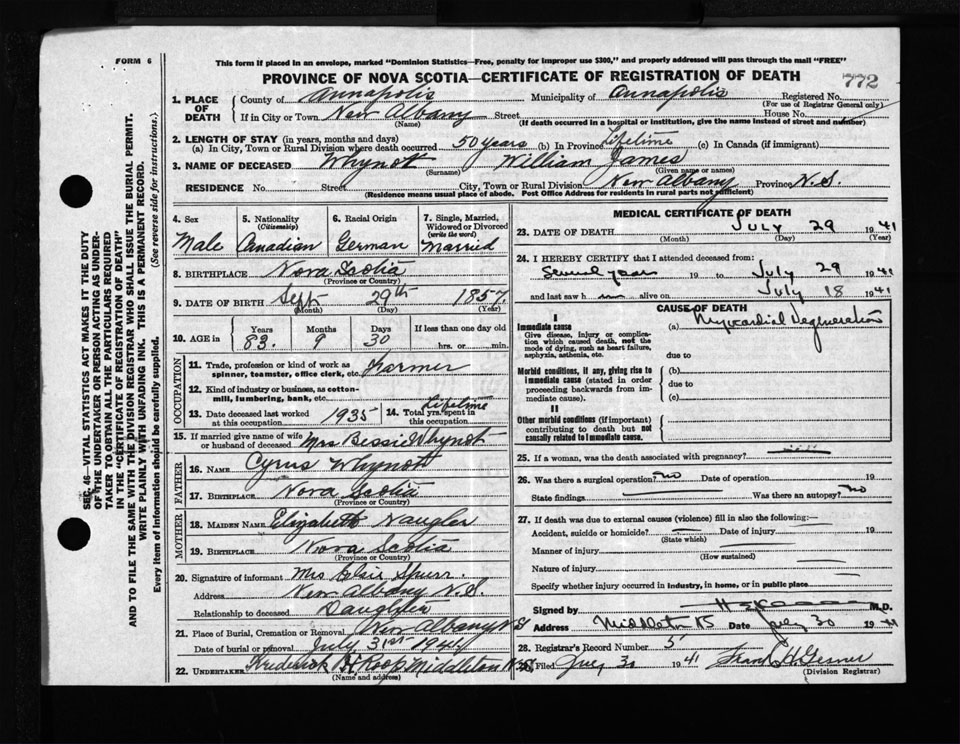 FORM 6
This form if placed in an envelope, marked "Dominion Statistics—Free, penalty for improper use $300," and properly addressed will pass through the mail "FREE"
PROVINCE OF NOVA SCOTIA—CERTIFICATE OF REGISTRATION OF DEATH
772
1. PLACE OF DEATH { County of Annapolis Municipality of Annapolis Registered No.
(For use of Registrar General only)
If in City or Town New Albany Street House No.
(Name) (If death occurred in a hospital or institution, give the name instead of street and number)
2. LENGTH OF STAY (in years, months and days)
(a) In City, Town or Rural Division where death occurred 50 years (b) In Province Lifetime (c) In Canada (if immigrant)
3. NAME OF DECEASED Whynot William James
(Surname) (Given name or names)
RESIDENCE No. Street City, Town or Rural Division New Albany Province N.S.
(Residence means usual place of abode. Post Office Address for residents in rural parts not sufficient)
4. Sex Male
5. Nationality (Citizenship) Canadian
6. Racial Origin German
7. Single, Married, Widowed or Divorced (write the word) Married
8. BIRTHPLACE Nova Scotia
(Province or Country)
9. DATE OF BIRTH Sept 29th 1857
(Month) (Day) (Year)
10. AGE in Years 83. Months 9 Days 30 If less than one day old hrs. or min.
OCCUPATION
11. Trade, profession or kind of work as spinner, teamster, office clerk, etc. Farmer
12. Kind of industry or business, as cotton-mill, lumbering, bank, etc.
13. Date deceased last worked at this occupation 1935
14. Total yrs. spent in this occupation Lifetime
15. If married give name of wife or husband of deceased Mrs Bessie Whynot
FATHER
16. NAME Cyrus Whynot
17. BIRTHPLACE Nova Scotia
(Province or Country)
MOTHER
18. MAIDEN NAME Elizabeth Naugler
19. BIRTHPLACE Nova Scotia
(Province or Country)
20. Signature of informant Mrs Elsir Spurr
Address New Albany N.S.
Relationship to deceased Daughter
21. Place of Burial, Cremation or Removal New Albany N.S
Date of burial or removal July 31st 1941
22. UNDERTAKER Frederick H Roop Middleton N.S.
(Name and address)
MEDICAL CERTIFICATE OF DEATH
23. DATE OF DEATH JULY 29 1941
(Month) (Day) (Year)
24. I HEREBY CERTIFY that I attended deceased from:
Several years to July 29 1941
and last saw him alive on July 18 1941
CAUSE OF DEATH
I
Immediate cause
Give disease, injury or complication which caused death, not the mode of dying, such as heart failure, asphyxia, asthenia, etc.
(a) Myocardial Degeneration
due to
Morbid conditions, if any, giving rise to immediate cause (stated in order proceeding backwards from immediate cause).
(b)
due to
(c)
II
Other morbid conditions (if important) contributing to death but not causally related to immediate cause.
25. If a woman, was the death associated with pregnancy?
26. Was there a surgical operation? no Date of operation 19
State findings Was there an autopsy? no
27. If death was due to external causes (violence) fill in also the following:—
Accident, suicide or homicide? Date of injury 19
(State which)
Manner of injury
(How sustained)
Nature of injury
Specify whether injury occurred in industry, in home, or in public place
Signed by M.D.
Address Middleton NS Date July 30 1941
28. Registrar's Record Number 5
Filed July 30 1941 Frank H. Gesner
(Division Registrar)
SEC. 46—VITAL STATISTICS ACT MAKES IT THE DUTY
OF THE UNDERTAKER OR PERSON ACTING AS UNDER-
TAKER TO OBTAIN ALL THE PARTICULARS REQUIRED
IN THE "CERTIFICATE OF REGISTRATION OF DEATH"
AND TO FILE THE SAME WITH THE DIVISION REGISTRAR WHO SHALL ISSUE THE BURIAL PERMIT.
WRITE PLAINLY WITH UNFADING INK. THIS IS A PERMANENT RECORD.
Every item of information should be carefully supplied. (See reverse side for instructions.)